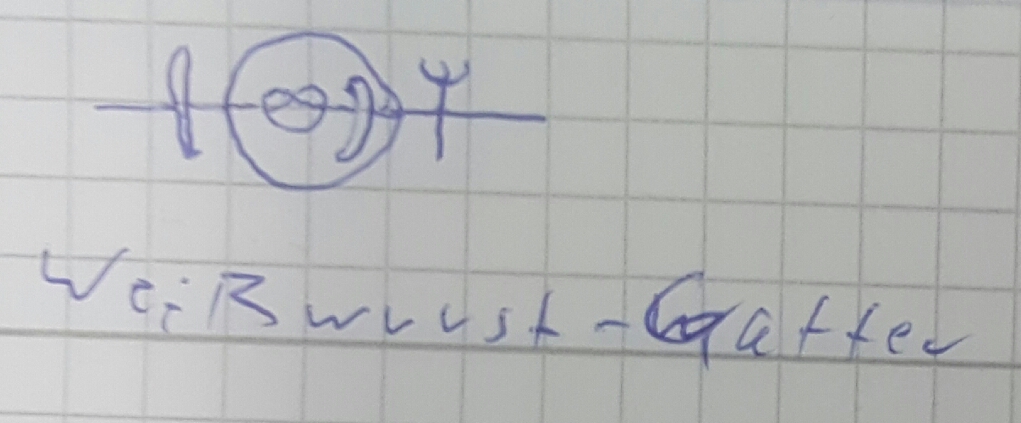 Weißwurst-Gatter